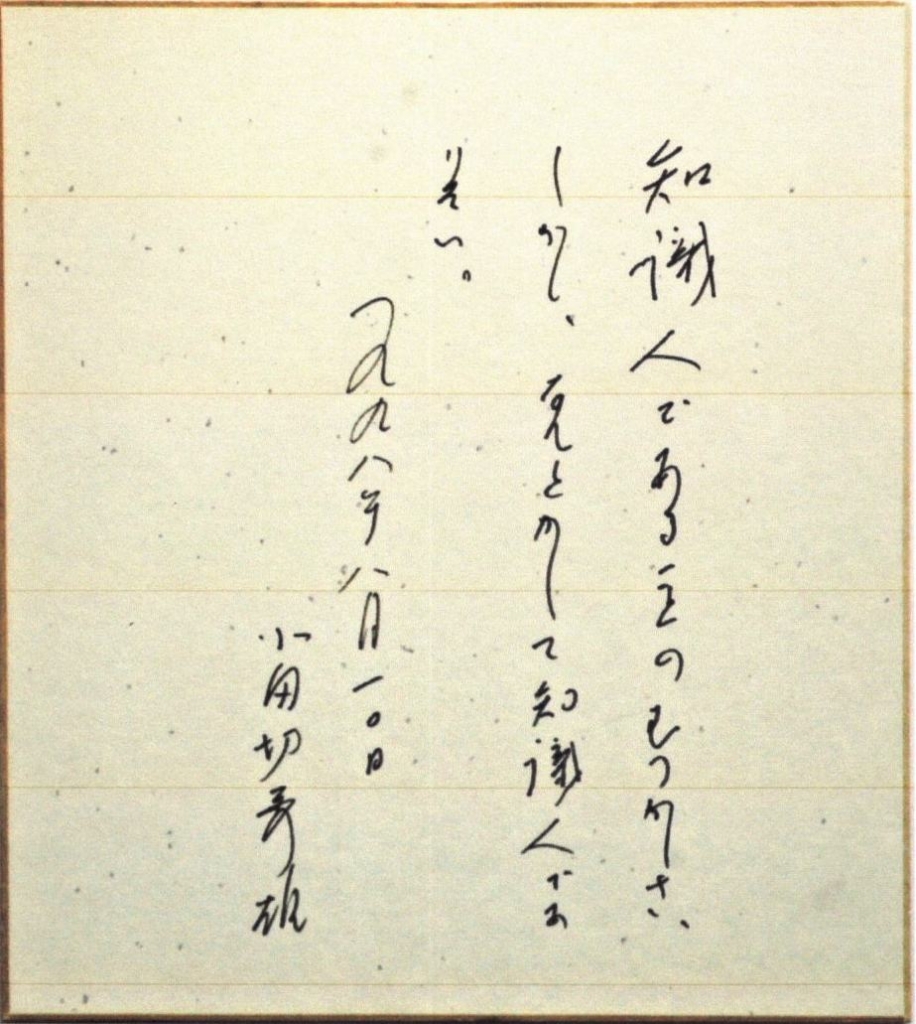 知識人であることのむつかしさ、
しかし、なんとかして知識人であ
りたい。
一九九八年八月一〇日
小田切秀雄